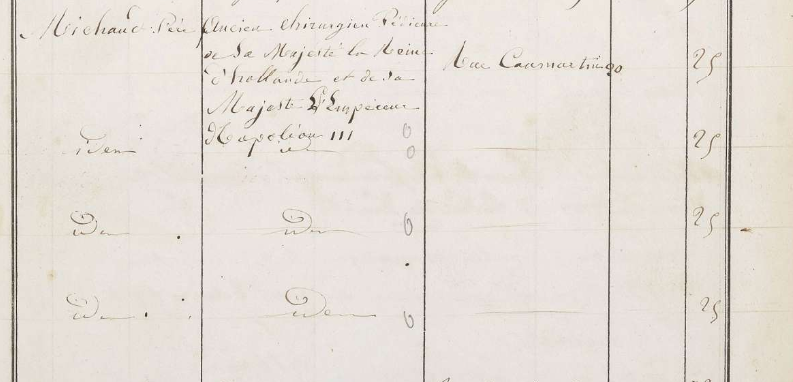 Michaud Père Ancien Chirurgien Pédicure
de Sa Majesté la Reine Rue Caumartin 20 25
d'hollande et de Sa
Majesté L'Empereur
Napoléon III 0
idem id 0 25
idem idem 0 25
idem idem 0 25